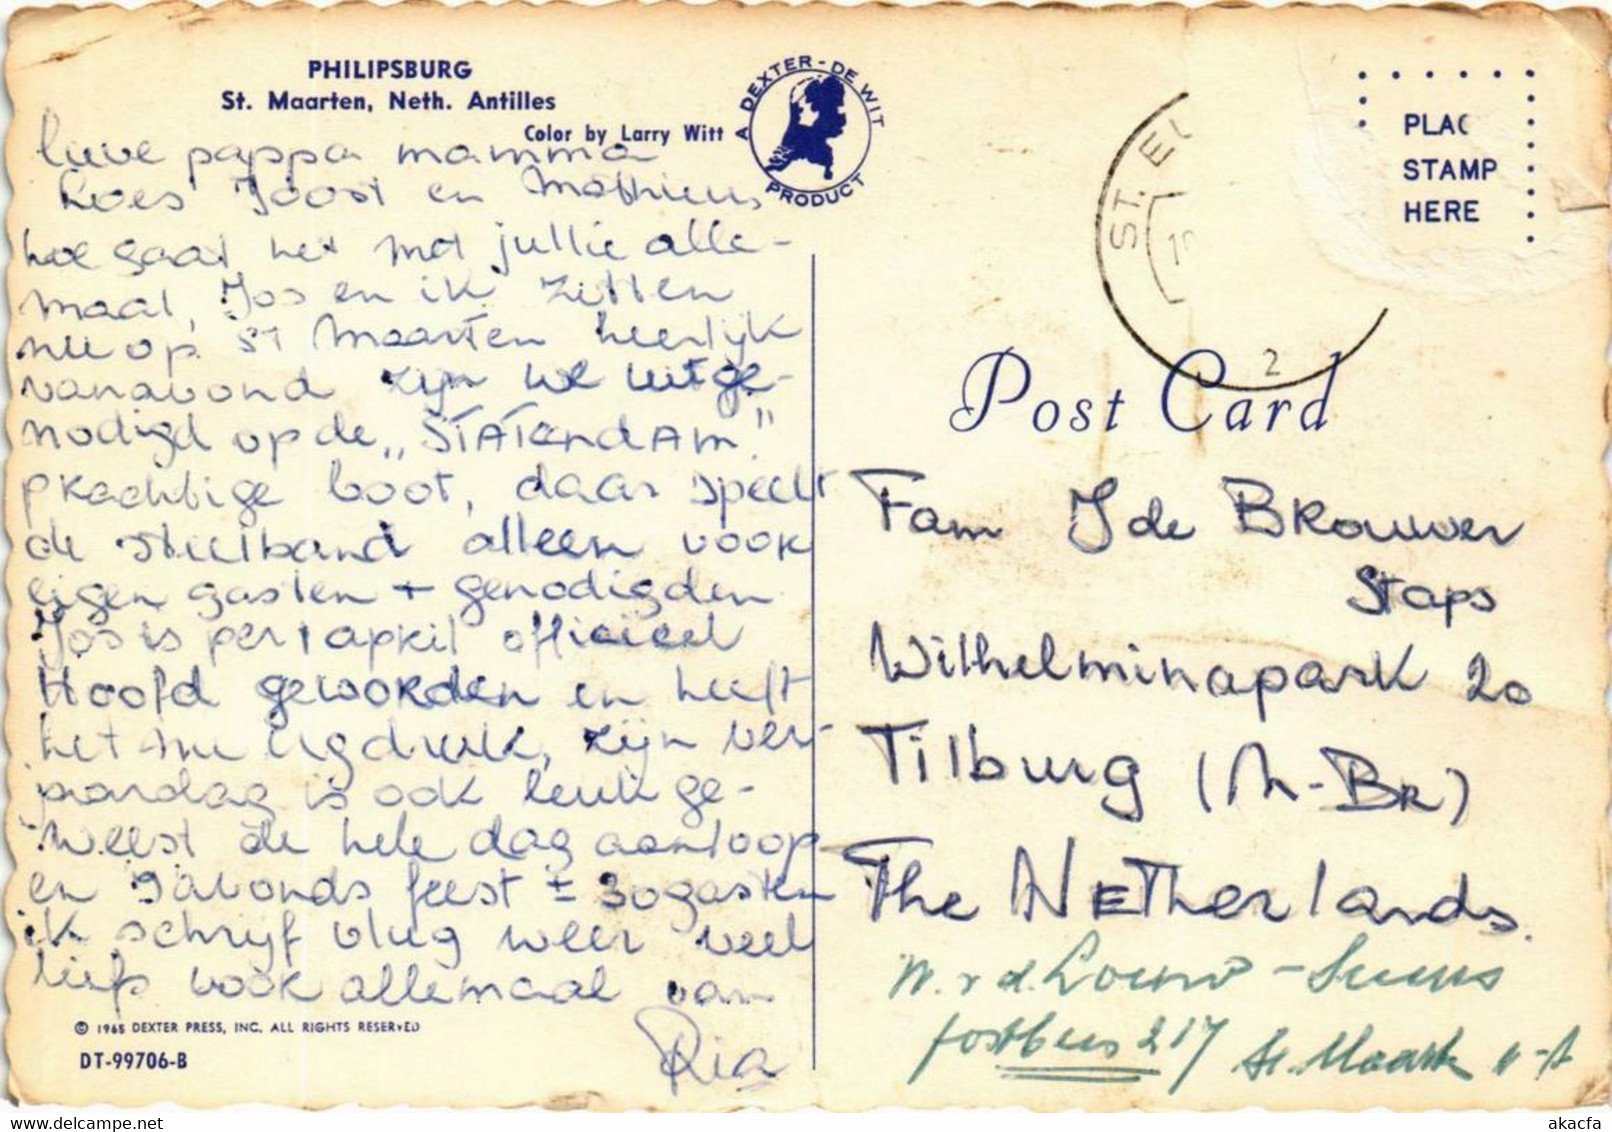 PHILIPSBURG
St. Maarten, Neth. Antilles
Color by Larry Witt
A DEXTER-DE WIT PRODUCT
lieve pappa mamma
Loes Joost en Mathieu
hoe gaat het met jullie alle-
maal, Jos en ik zitten
nu op St Maarten heerlijk
vanavond zijn we uitge-
nodigd op de "STATENDAM"
prachtige boot, daar speelt
de steelband alleen voor
eigen gasten + genodigden
Jos is per 1 april officieel
Hoofd geworden en heeft
het nu erg druk, zijn ver-
jaardag is ook leuk ge-
weest de hele dag aanloop
en 's avonds feest ± 30 gasten
ik schrijf vlug weer veel
liefs voor allemaal van
Ria
© 1965 DEXTER PRESS, INC. ALL RIGHTS RESERVED
DT-99706-B
ST. EU
2
PLAC
STAMP
HERE
Post Card
Fam J de BRouwer
Staps
Wilhelminapark 20
Tilburg (N-BR)
The NETherlands.
W. v d. Louw - 
postbus 217 St. Maarten N-A
akacfa